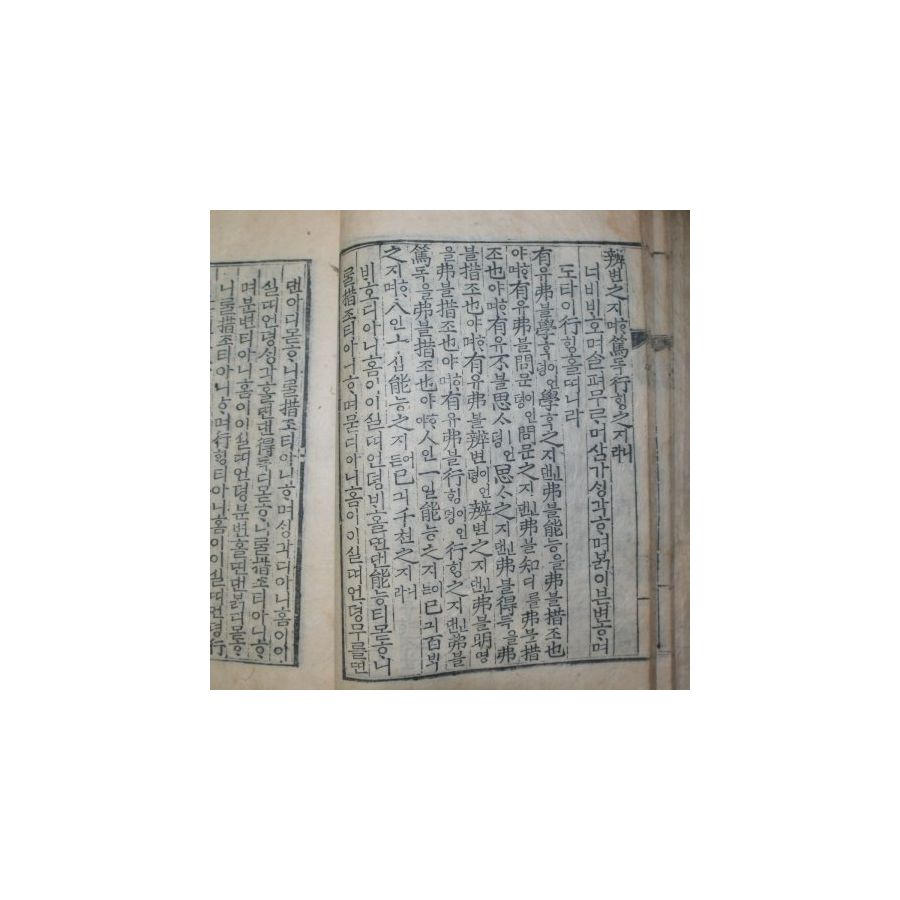 辨변之지ᄒᆞ며篤독行ᄒᆡᆼ之지니라
너비ᄇᆡ호며ᄉᆞᆯ펴무르며삼가ᄉᆡᆼ각ᄒᆞ며ᄇᆞᆰ이분변ᄒᆞ며
도타이行ᄒᆡᆼ홀띠니라
有유弗블學ᄒᆞᆨ이언뎡學ᄒᆞᆨ之진댄弗블能능을弗블措조也
야ᄒᆞ며有유弗블問문이언뎡問문之진댄弗블知디를弗블措
조也야ᄒᆞ며有유不블思ᄉᆞㅣ언뎡思ᄉᆞ之진댄弗블得득을弗
블措조也야ᄒᆞ며有유弗블辨변이언뎡辨변之진댄弗블明명
을弗블措조也야ᄒᆞ며有유弗블行ᄒᆡᆼ이언뎡行ᄒᆡᆼ之진댄弗블
篤독을弗블措조也야ᄒᆞ야人인一일能능之지어든己긔百ᄇᆡᆨ
之지ᄒᆞ며人인十십能능之지어든己긔千쳔之지니라
ᄇᆡ호디아니홈이이실띠언뎡ᄇᆡ홀띤댄能능티몯ᄒᆞ니
ᄅᆞᆯ措조티아니ᄒᆞ며묻디아니홈이이실띠언뎡무를띤
댄아디몯ᄒᆞ니ᄅᆞᆯ措조티아니ᄒᆞ며ᄉᆡᆼ각디아니홈이이
실띠언뎡ᄉᆡᆼ각홀띤댄得득디몯ᄒᆞ니ᄅᆞᆯ措조티아니ᄒᆞ
며분변티아니홈이이실띠언뎡분변홀띤댄ᄇᆞᆰ디몯ᄒᆞ
니ᄅᆞᆯ措조티아니ᄒᆞ며行ᄒᆡᆼ티아니홈이이실띠언뎡行